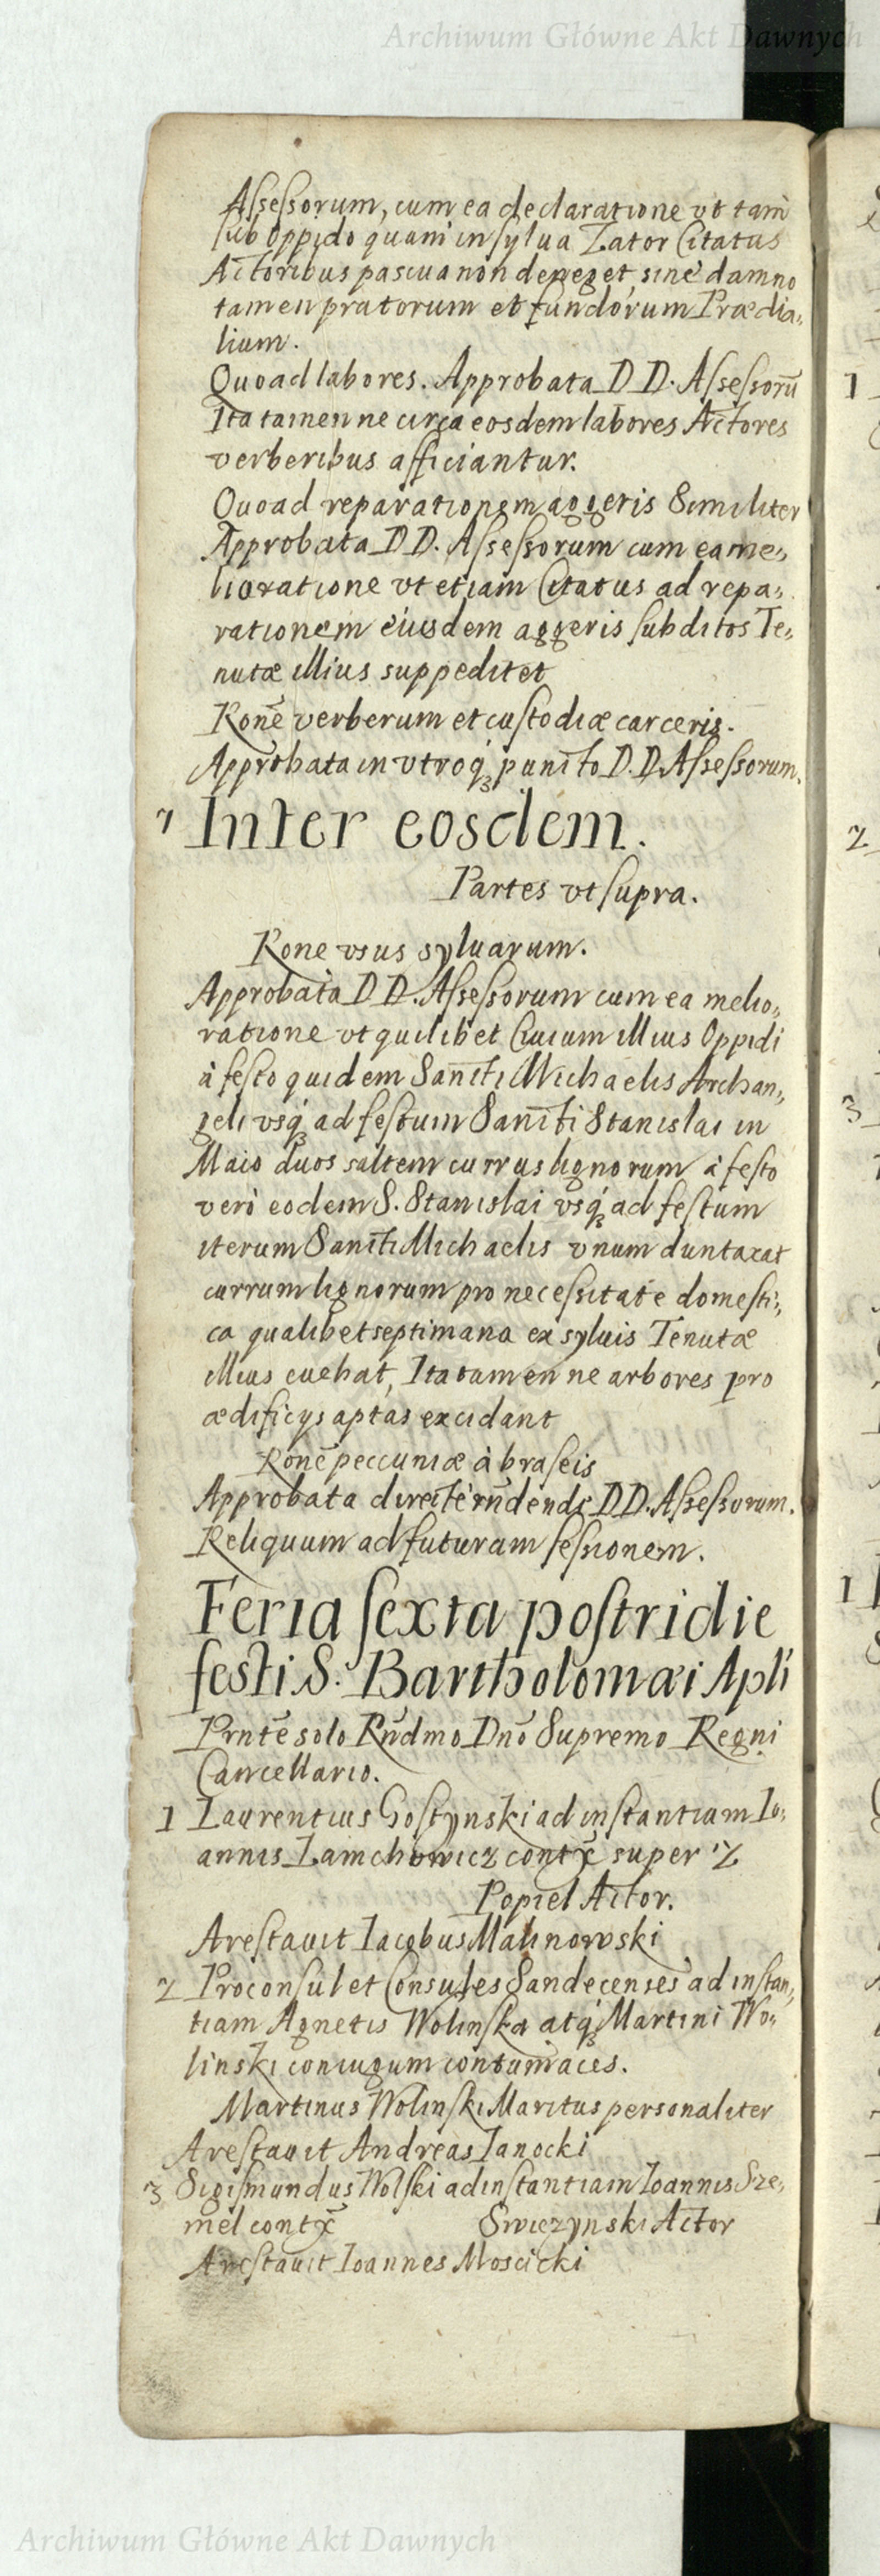 Archiwum Główne Akt Dawnych
Assessorum, cum ea declaratione vt tam
sub oppido quam in sylua Zator Citatus
Actoribus pascua non deneget, sine damno
tamen pratorum et fundorum Prædia,,
lium.
Quoad labores. Approbata D D. Assessorū
Ita tamen ne circa eosdem labores Actores
verberibus afficiantur.
Quoad reparationem aggeris Similiter
Approbata D D. Assessorum cum ea me,,
lioratione vt etiam Citatus ad repa,,
rationem eiusdem aggeris subditos Te,,
nutæ illius suppeditet
Rone verberum et custodiæ carceris.
Approbata in vtroq3 puncto D. D. Assessorum.
7 Inter eosdem.
Partes vt supra.
Rone vsus syluarum.
Approbata D D. Assessorum cum ea melio,,
ratione vt quilibet Ciuium illius Oppidi
à festo quidem Sancti Michaelis Archan,,
geli vsq3 ad festum Sancti Stanislai in
Maio duos saltem currus lignorum à festo
verò eodem S. Stanislai vsq3 ad festum
iterum Sancti Michaelis vnum duntaxat
currum lignorum pro necessitate domesti,,
ca qualibet septimana ex syluis Tenutæ
illius euehat, Ita tamen ne arbores pro
ædificijs aptas excidant
Rone peccuniæ à braseis
Approbata directè rñdende D D. Assessorum.
Reliquum ad futuram sessionem.
Feria sexta postridie
festi S. Bartholomæi Apli
Prnte solo Rñdmo Dno Supremo Regni
Cancellario.
1 Laurentius Gostynski ad instantiam Io,,
annis Zamchowicz contx super 2
Popiel Actor.
Arestauit Iacobus Malinowski
2 Proconsul et Consules Sandecenses ad instan,,
tiam Agnetis Wolinska atq3 Martini Wo,,
linski coniugum contumaces.
Martinus Wolinski Maritus personaliter
Arestauit Andreas Ianocki
3 Sigismundus Wolski ad instantiam Ioannis Sze,,
mel contx Swiczynski Actor
Arestauit Ioannes Moscicki
1
2
3
1
Archiwum Główne Akt Dawnych